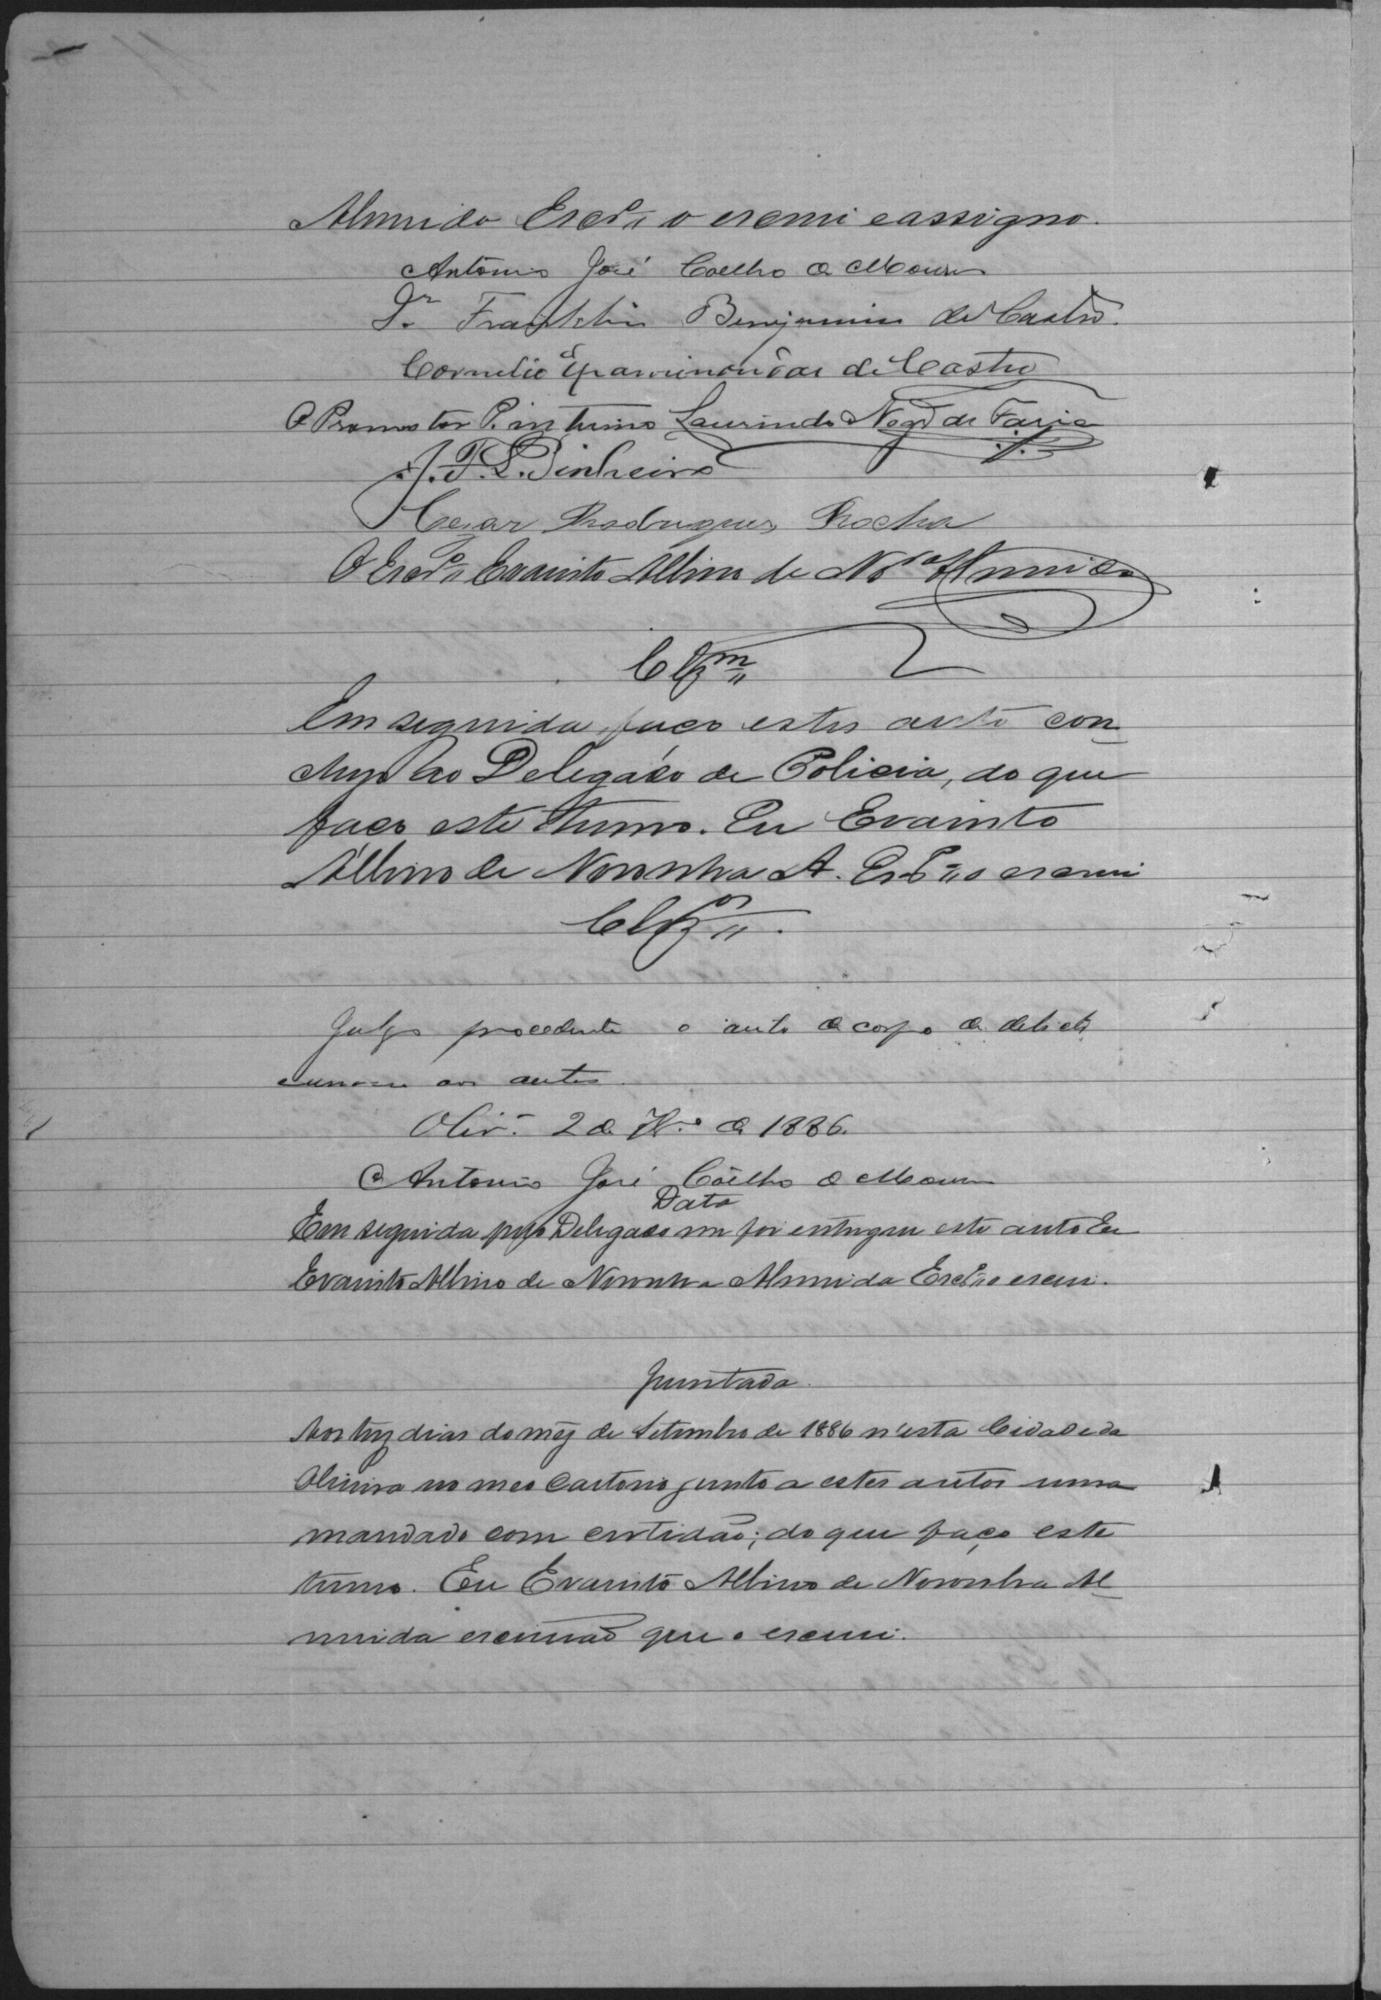 Almeida Escr.am o escrevi e assigno.
Antonio José Coelho de Moura
Dr. Franklin Benjamin de Castro.
Cornelio Epaminondas de Castro
O Promotor P. interino Laurindo Nogr.a de Faria
J. F. L. Pinheiro
Cezar Rodrigues Rocha
O Escr.am Evaristo Albino de Nor.a Almeida
Clzm
Em seguida faço estes auto con
cluso ao Delegado de Policia, do que
faço este termo. Eu Evaristo
Albino de Noronha A. Escr.am o escrevi
Clzos.
Julgo procedente o auto de corpo de delicto
aos autos.
Oliv.a 2 de 7br.o de 1886.
Antonio José Coêlho de Moura
Data
Em seguida pelo Delegado me foi entregue este auto Eu
Evaristo Albino de Noronha Almeida Escr.am o escrevi.
Juntada
Aos trez dias do mez de Setembro de 1886 n'esta Cidade da
Oliveira no meo Cartorio junto a estes autos uma
mandado com certidão; do que faço este
termo. Eu Evaristo Albino de Noronha Al
meida escrivão que o escrevi.